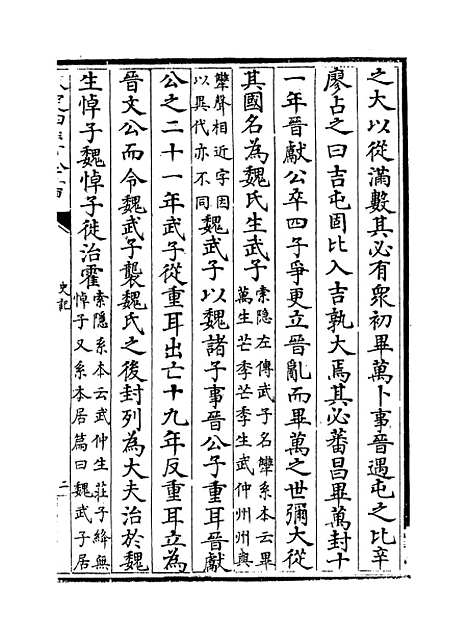 之大以從滿數其必有衆初畢萬卜事晉遇屯之比辛
廖占之曰吉屯固比入吉孰大焉其必蕃昌畢萬封十
一年晉獻公卒四子爭更立晉亂而畢萬之世彌大從
其國名為魏氏生武子索隱左傳武子名犨系本云畢
萬生芒季芒季生武仲州州與
犨聲相近字因
以異代亦不同魏武子以魏諸子事晉公子重耳晉獻
公之二十一年武子從重耳出亡十九年反重耳立為
晉文公而令魏武子襲魏氏之後封列為大夫治於魏
生悼子魏悼子徙治霍索隱系本云武仲生莊子絳無
悼子又系本居篇曰魏武子居
史記
二